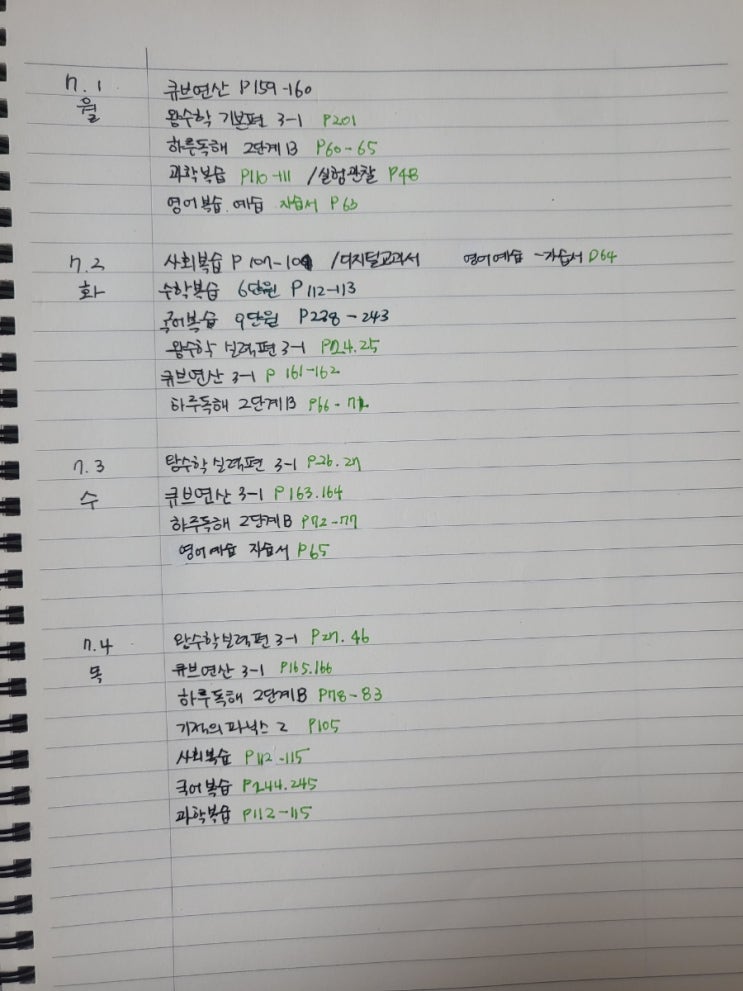 7.1 큐브연산 P159-160
월 왕수학 기본편 3-1 P201
하루독해 2단계B P60-65
과학복습 P110-111 /실험관찰 P48
영어복습. 예습 자습서 P63
7.2 사회복습 P107-109 /디지털교과서 영어예습 -자습서 P64
화 수학복습 6단원 P112-113
국어복습 9단원 P238-243
왕수학 실력편 3-1 P24.25
큐브연산 3-1 P 161-162
하루독해 2단계B P66-71
7.3 왕수학실력편 3-1 P26.27
수 큐브연산 3-1 P163.164
하루독해 2단계B P72-77
영어예습 자습서 P65
7.4 왕수학실력편 3-1 P27.46
목 큐브연산 3-1 P165.166
하루독해 2단계B P78-83
기적의파닉스 2 P105
사회복습 P112-115
국어복습 P244.245
과학복습 P112-115